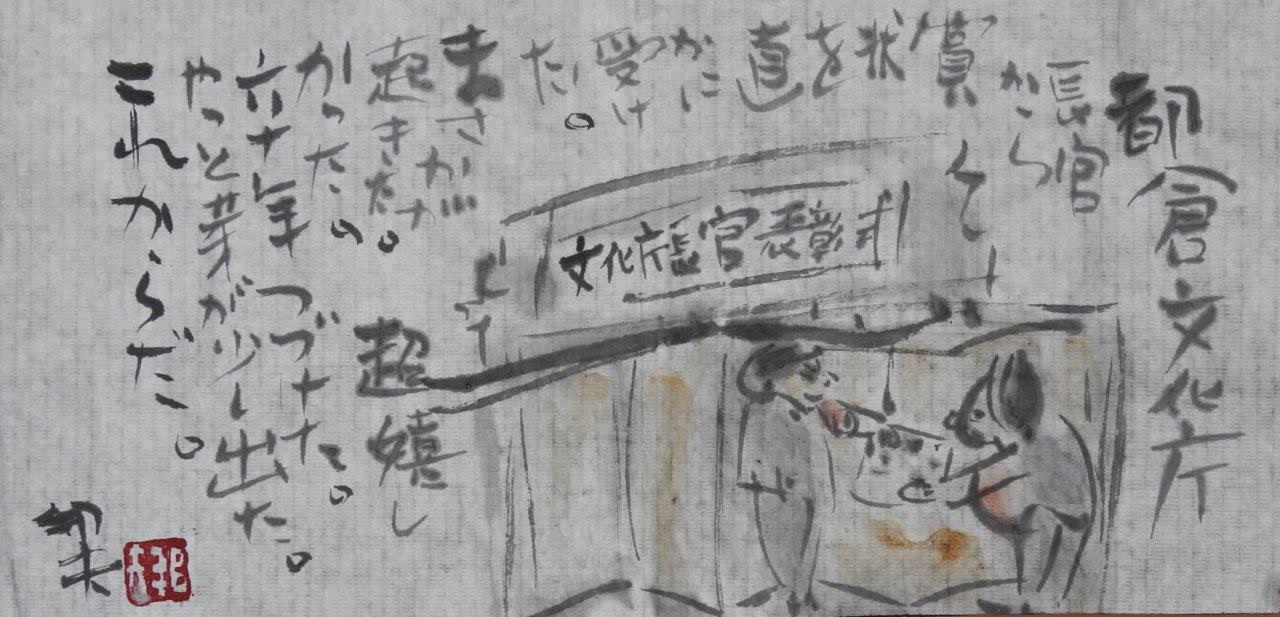 都倉文化庁
長官
から
賞
状
を
直
かに
受け
た。
まさかが
起きた。
超嬉し
かった。
六十年つづけた。
やっと芽が少し出た。
これからだ。
文化庁長官表彰式